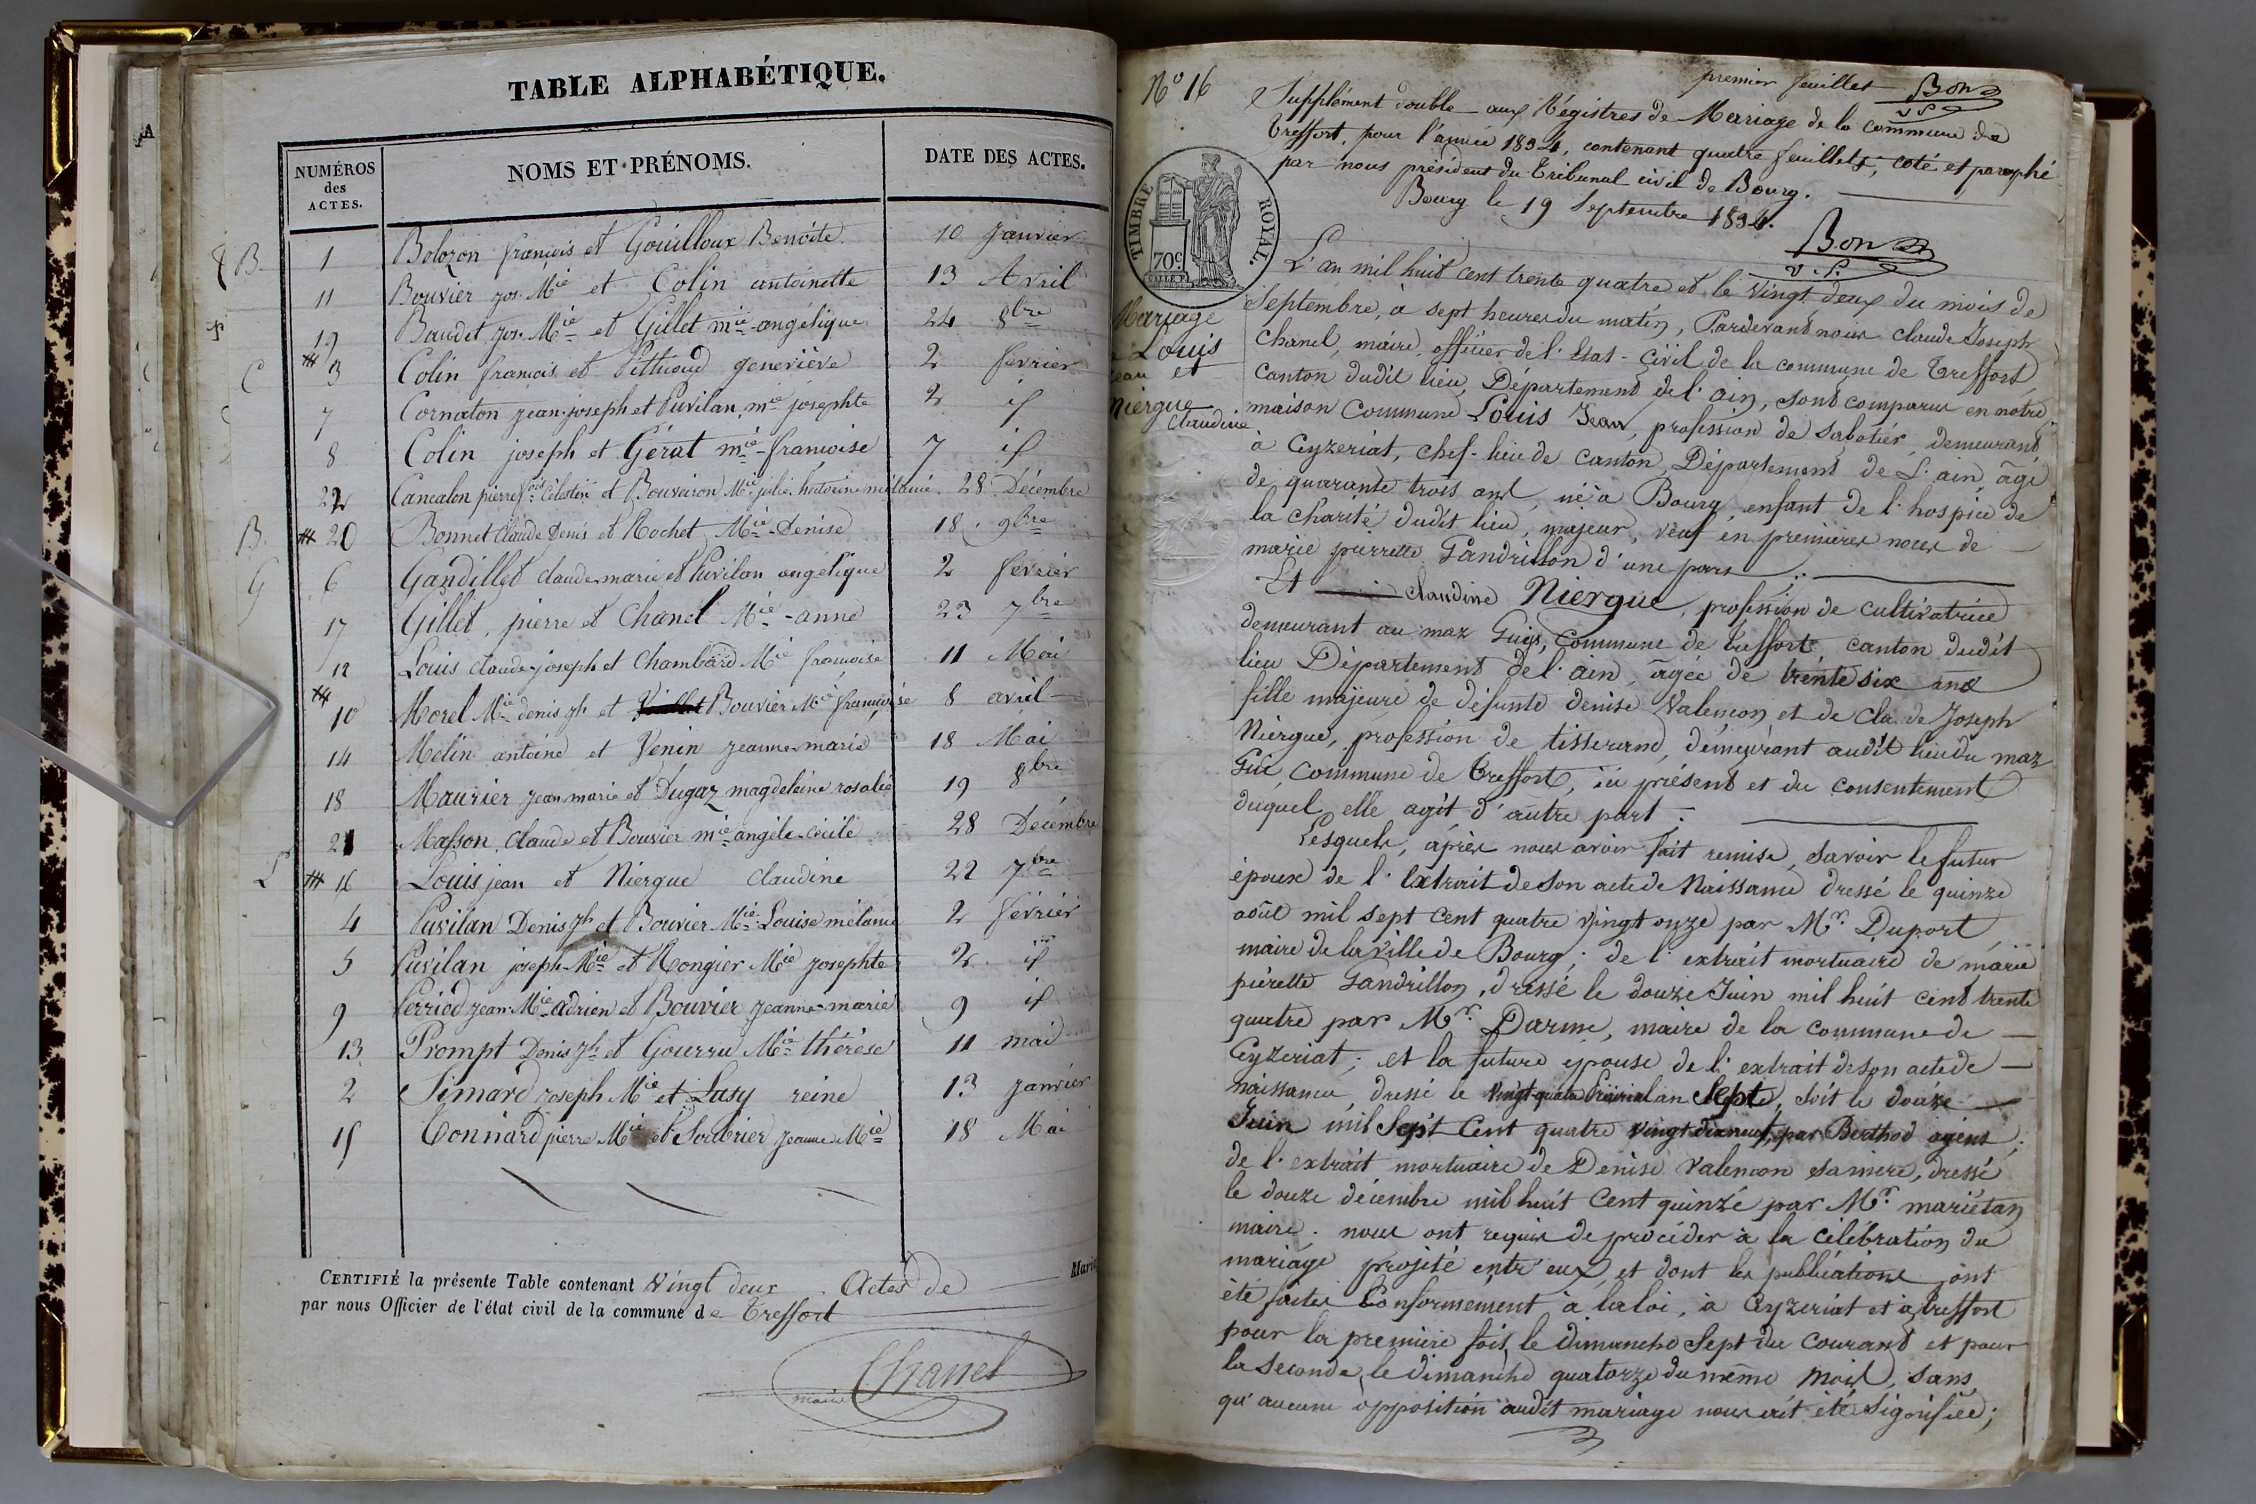 TABLE ALPHABÉTIQUE.
NUMÉROS des ACTES. NOMS ET PRÉNOMS. DATE DES ACTES.
B 1 Bolozon françois et Gouilloux Benoite 10 Janvier
11 Bouvier jos. Mie et Colin antoinette 13 Avril
19 Baudet jos. Mie et Gillet mie angélique 24 8bre
C 3 Colin françois et Pethioud geneviève 2 février
7 Cornaton jean-joseph et Puvilan, mie josephte 2 if
8 Colin joseph et Gérat mie françoise 7 if
22 Cancalon pierre fois Célestin et Bouvairon Mie julie mélanie 28 Décembre
B. 20 Bonnet Claude Denis et Rochet Mie Denise 18 9bre
G 6 Gandillet claude marie et Puvilan angélique 2 février
17 Gillet, pierre et Chanel Mie-anne 23 7bre
12 Louis claude-joseph et Chambard Mie françoise 11 Mai
10 Morel Mie denis jh et Bouvier Mie françoise 8 avril
14 Melin antoine et Venin jeanne-marie 18 Mai
18 Maurier jean marie et Dugaz magdeleine rosalie 19 8bre
21 Masson, Claude et Bouvier mie angèle-cécile 28 Décembre
L 16 Louis jean et Niergue claudine 22 7bre
4 Puvilan Denis jh et Bouvier Mie Louise mélanie 2 février
5 Puvilan joseph-Mie et Rongier Mie josephte 2 if
9 Perriod jean-Mie adrien et Bouvier jeanne-marie 9 if
13 Prompt Denis jh et Gourru Mie thérèse 11 mai
2 Simard joseph Mie et Lasy reine 13 janvier
15 Tonnard pierre Mie et Soubrier jeanne Mie 18 Mai
CERTIFIÉ la présente Table contenant Vingt deux Actes de Maria
par nous Officier de l'état civil de la commune de Treffort
Chanel
maire
No 16
premier feuillet Bon
v. P.
Supplément double aux Régistres de Mariage de la commune de
Treffort, pour l'année 1834, contenant quatre feuillets, coté et paraphé
par nous président du Tribunal civil de Bourg.
Bourg le 19 Septembre 1834.
Bon
v. P.
TIMBRE ROYAL.
70c
Mariage
Louis
Jean et
Niergue
Claudine
L'an mil huit cent trente quatre et le vingt deux du mois de
Septembre, à sept heures du matin, Pardevant nous claude Joseph
Chanel, maire, officier de l'état-civil de la commune de Treffort,
Canton dudit lieu, Département de l'ain, sont comparus en notre
maison Commune Louis Jean, profession de sabotier, demeurant
à Ceyzeriat, chef-lieu de canton, Département de L'ain, âgé
de quarante trois ans, né à Bourg, enfant de l'hospice de
la charité dudit lieu, majeur, veuf en premières noces de
marie pierrette Gandrillon d'une part
Et claudine Niergue, profession de cultivatrice
demeurant au maz Guis, Commune de Treffort, canton dudit
lieu Département de l'ain, âgée de trente six ans
fille majeure de défunte denise Valencon et de Claude Joseph
Niergue, profession de tisserand, demeurant audit lieu du maz
Gui, Commune de Treffort, ici présent et du consentement
duquel elle agit d'autre part.
Lesquels, après nous avoir fait remise, savoir le futur
époux de l'extrait de son acte de Naissance dressé le quinze
août mil sept cent quatre vingt onze par Mr. Duport
maire de la ville de Bourg; de l'extrait mortuaire de marie
pierette Gandrillon, dressé le douze Juin mil huit cent trente
quatre par Mr. Darme, maire de la commune de
Ceyzeriat; et la future épouse de l'extrait de son acte de
naissance, dressé le vingt quatre Prairial an Sept, soit le douze
Juin mil Sept Cent quatre vingt dix neuf, par Berthod agent;
de l'extrait mortuaire de Denise Valencon sa mere, dressé
le douze décembre mil huit cent quinze par Mr. mariétan
maire. nous ont requis de procéder à la célébration du
mariage projeté entr'eux, et dont les publications ont
été faites Conformement à la loi, à Ceyzeriat et à Treffort
pour la première fois, le dimanche Sept du courant et pour
la seconde, le dimanche quatorze du même mois, sans
qu'aucune opposition audit mariage nous ait été signifiée;